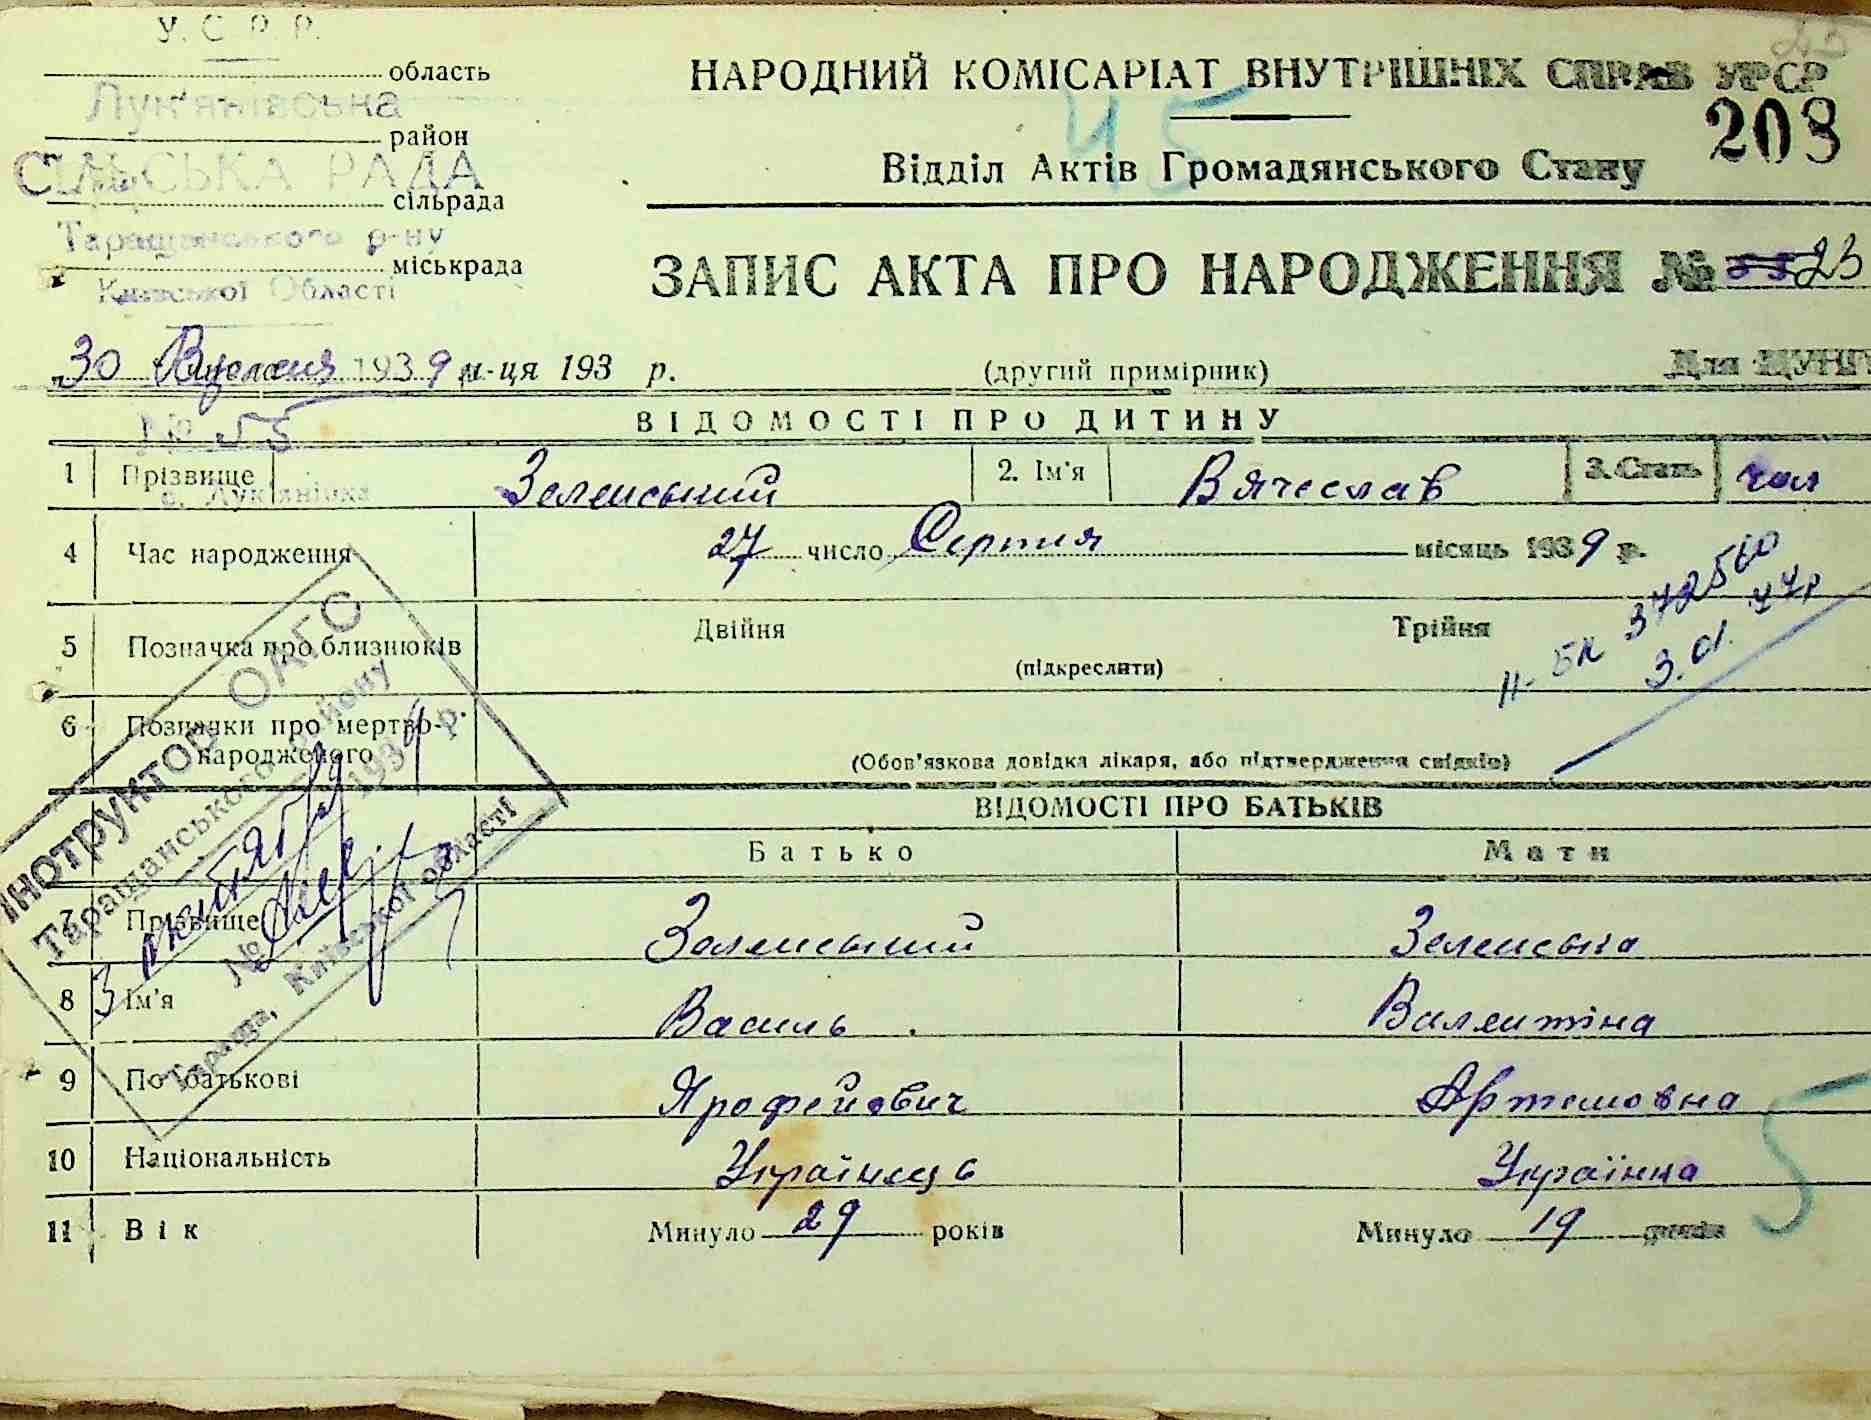 У. С. Р. Р.
область
Лук'янівська
район
СІЛЬСЬКА РАДА
сільрада
Таращанського р-ну
міськрада
Київської Області
НАРОДНИЙ КОМІСАРІАТ ВНУТРІШНІХ СПРАВ УРСР
45
208
Відділ Актів Громадянського Стану
ЗАПИС АКТА ПРО НАРОДЖЕННЯ № 55 23
30 Вересня 1939 м-ця 193 р. (другий примірник) Для ЦУНГ
№ 55
ВІДОМОСТІ ПРО ДИТИНУ
1 Прізвище Зеленський 2. Ім'я Вячеслав 3. Стать чол
с. Лук'янівка
4 Час народження 27 число Серпня місяць 1939 р.
5 Позначка про близнюків Двійня Трійня
(підкреслити)
II-БК 372560
3.01. 77р
6 Позначки про мертво-
народженого (Обов'язкова довідка лікаря, або підтвердження свідків)
Інструктор ОАГС
Таращанського району
3 октября 1939 р.
№
Тараща, Київської області
ВІДОМОСТІ ПРО БАТЬКІВ
Батько Мати
7 Прізвище Зеленський Зеленська
8 Ім'я Василь Валентіна
9 По батькові Ярофейович Артемовна
10 Національність Українець Українка
5
11 Вік Минуло 29 років Минуло 19 років